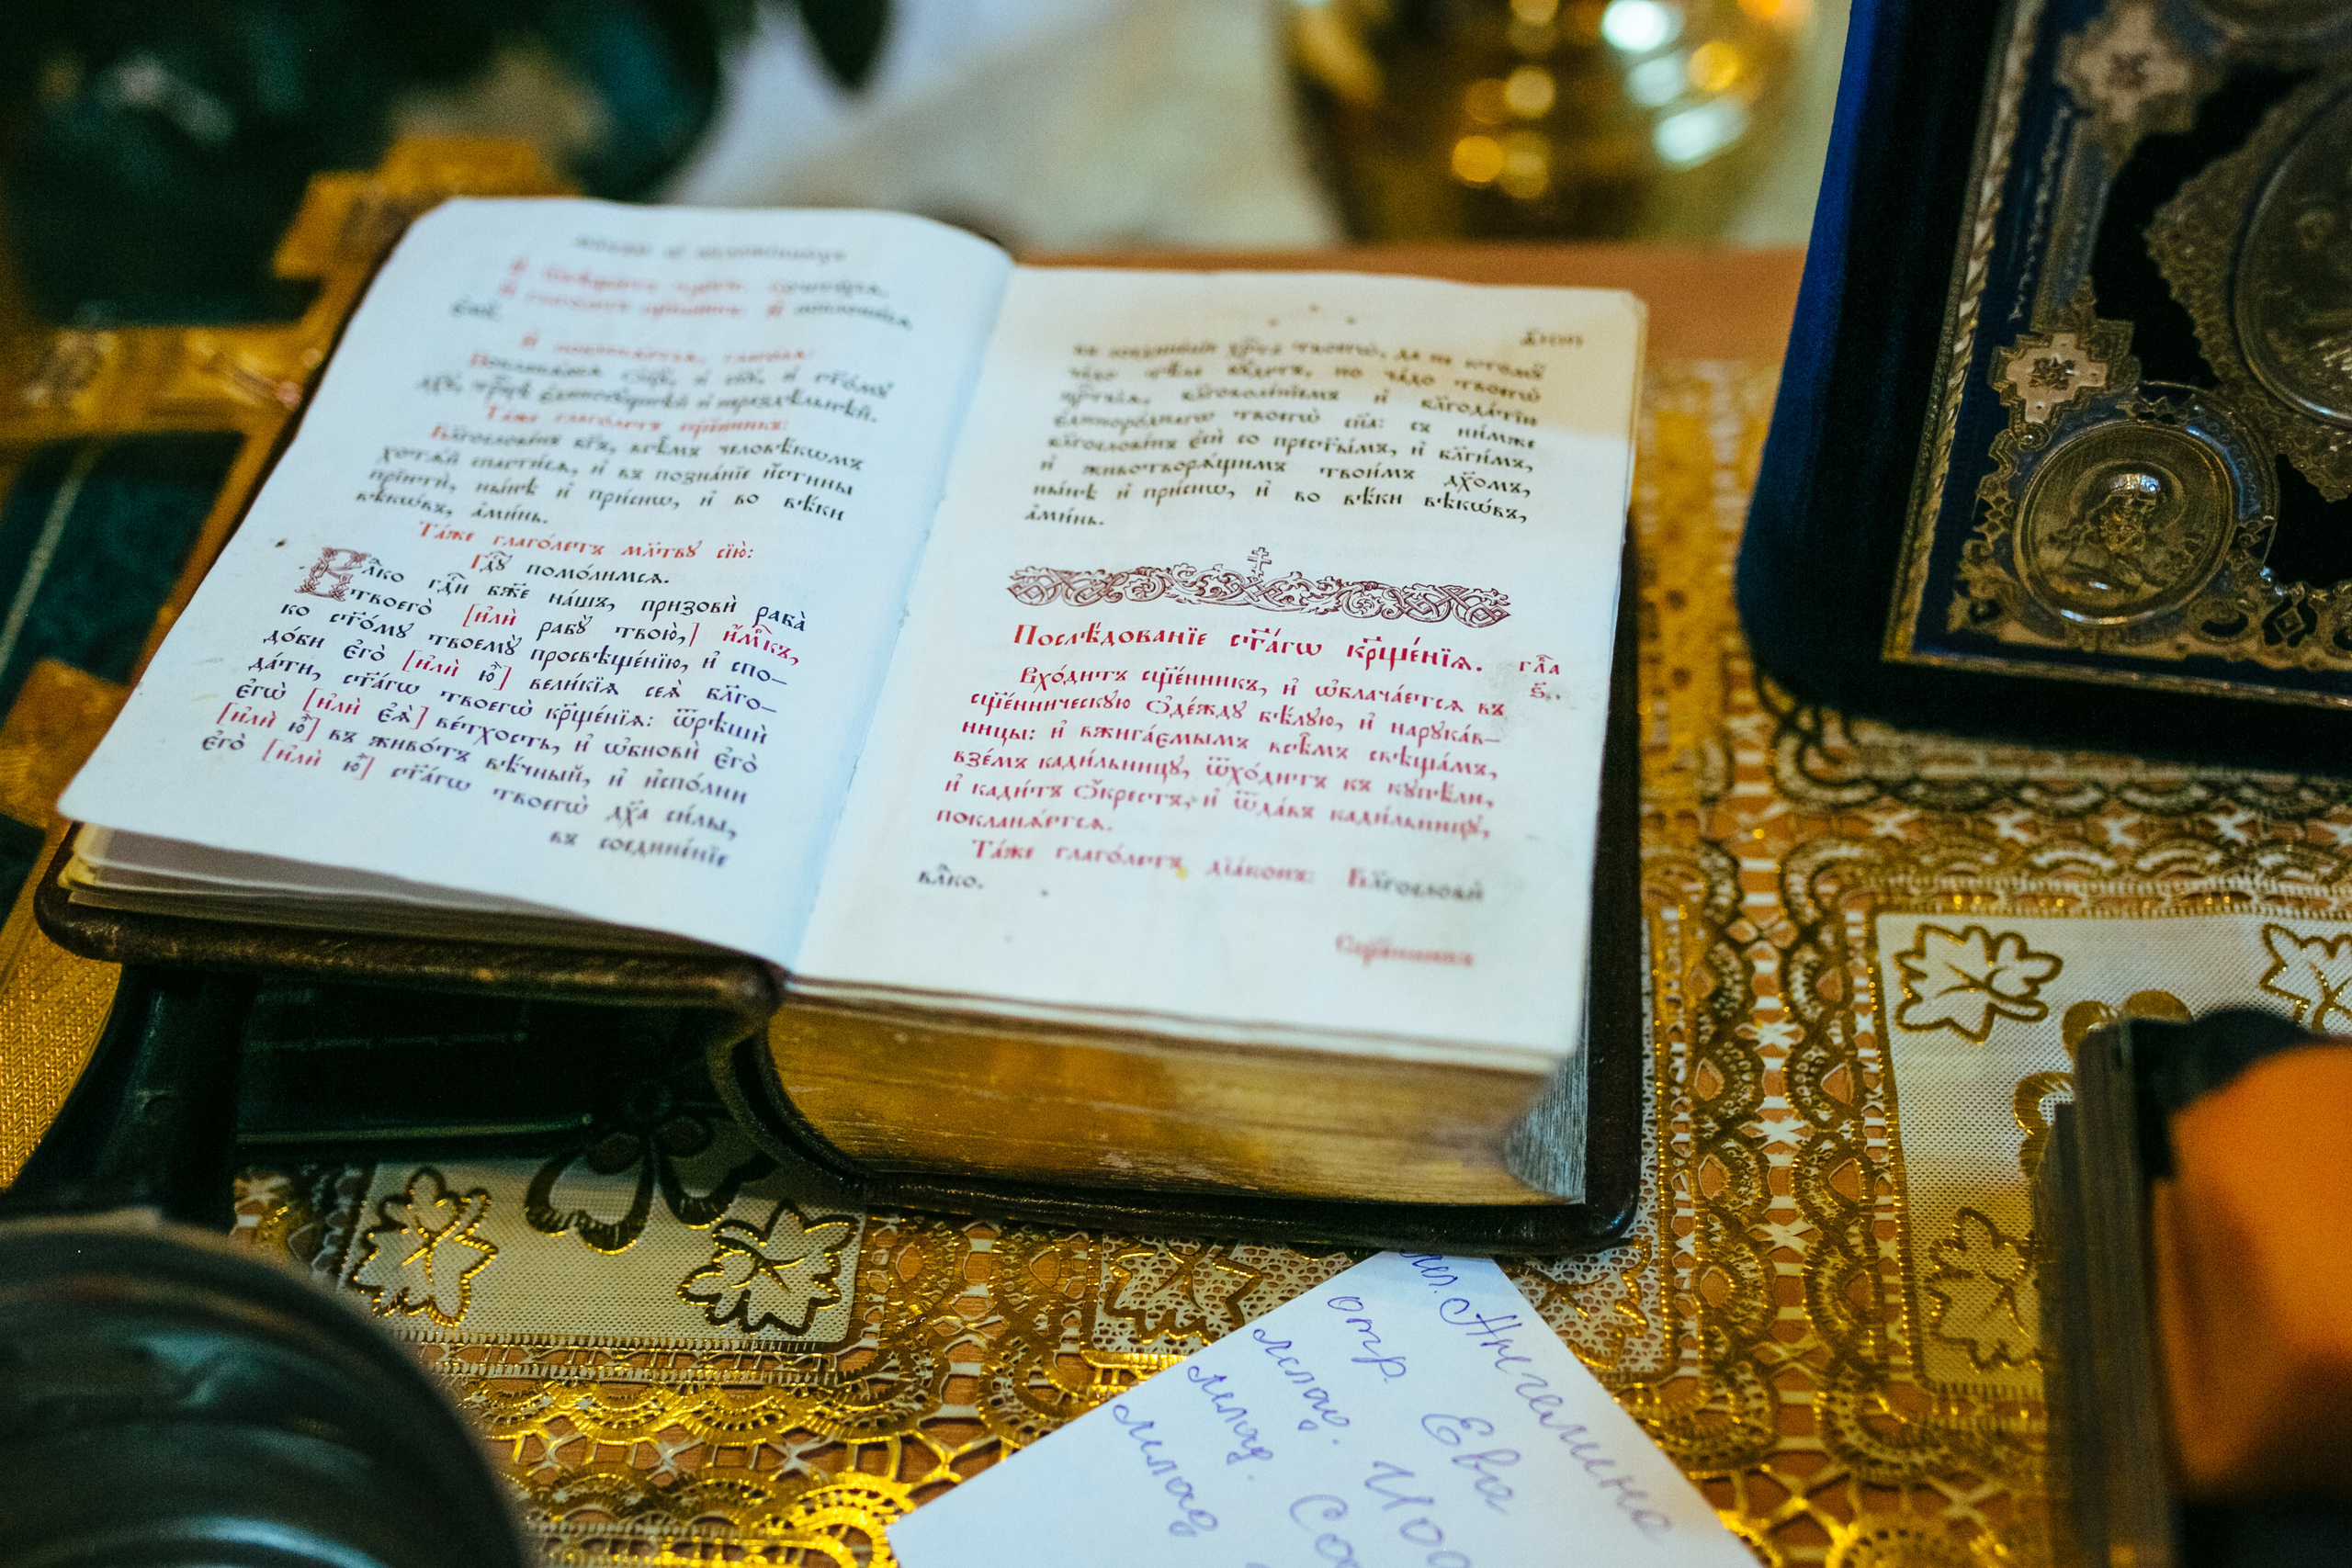 є҆мꙋ̀.
Покланѧ́юсѧ ѻ҆ц҃ꙋ̀, и҆ сн҃ꙋ, и҆ ст҃о́мꙋ
дх҃ꙋ, трⷪ҇цѣ є҆диносꙋ́щнѣй и҆ нераздѣ́льнѣй.
Та́же глаго́летъ сщ҃е́нникъ:
Бл҃гослове́нъ бг҃ъ, всѣ̑мъ человѣ́кѡмъ
хотѧ́й спасти́сѧ, и҆ въ позна́нїе и҆́стины
прїитѝ, ны́нѣ и҆ при́снѡ, и҆ во вѣ́ки
вѣкѡ́въ, а҆ми́нь.
Та́же глаго́летъ мл҃твꙋ сїю̀:
Гдⷭ҇ꙋ помо́лимсѧ.
Влⷣко гдⷭ҇и бж҃е на́шъ, призовѝ раба̀
твоего̀ [и҆лѝ рабꙋ̀ твою̀,] и҆́м҃къ,
ко ст҃о́мꙋ твоемꙋ̀ просвѣще́нїю, и҆ спо-
до́би є҆го̀ [и҆лѝ ю҆̀] вели́кїѧ сеѧ̀ бл҃го-
да́ти, ст҃а́гѡ твоегѡ̀ крⷭ҇ще́нїѧ: ѿрѣшѝ
є҆гѡ̀ [и҆лѝ є҆ѧ̀] ве́тхость, и҆ ѡ҆бновѝ є҆го̀
[и҆лѝ ю҆̀] въ живо́тъ вѣ́чный, и҆ и҆спо́лни
є҆го̀ [и҆лѝ ю҆̀] ст҃а́гѡ твоегѡ̀ дх҃а си́лы,
въ соедине́нїе
хрⷭ҇та̀ твоегѡ̀, да не ктомꙋ̀
ча́до тѣ́ла бꙋ́детъ, но ча́до твоегѡ̀
црⷭ҇твїѧ, бл҃говоле́нїемъ и҆ бл҃года́тїю
є҆диноро́днагѡ твоегѡ̀ сн҃а: съ ни́мже
бл҃гослове́нъ є҆сѝ со прест҃ы́мъ, и҆ бл҃ги́мъ,
и҆ животворѧ́щимъ твои́мъ дх҃омъ,
ны́нѣ и҆ при́снѡ, и҆ во вѣ́ки вѣкѡ́въ,
а҆ми́нь.
Послѣ́дованїе ст҃а́гѡ крⷭ҇ще́нїѧ. гла̑
ѕ҃.
Вхо́дитъ сщ҃е́нникъ, и҆ ѡ҆блача́етсѧ въ
сщ҃е́нническꙋю ѻ҆де́ждꙋ бѣ́лꙋю, и҆ нарꙋка́в-
ницы: и҆ вжига́ємымъ всѣ̑мъ свѣща́мъ,
взе́мъ кади́льницꙋ, ѿхо́дитъ къ кꙋпѣ́ли,
и҆ кади́тъ ѻ҆́крестъ, и҆ ѿда́въ кади́льницꙋ,
покланѧ́етсѧ.
Та́же глаго́летъ дїа́конъ: Бл҃гословѝ
влⷣко.
Сщ҃е́нникъ
Ангелина
отр. Ева
млад.
млад.
млад